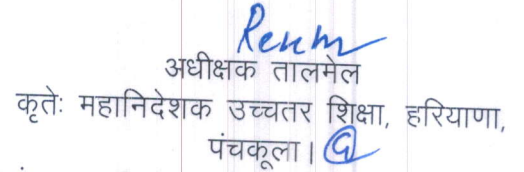 अधीक्षक तालमेल
कृतेः महानिदेशक उच्चतर शिक्षा, हरियाणा,
पंचकूला।